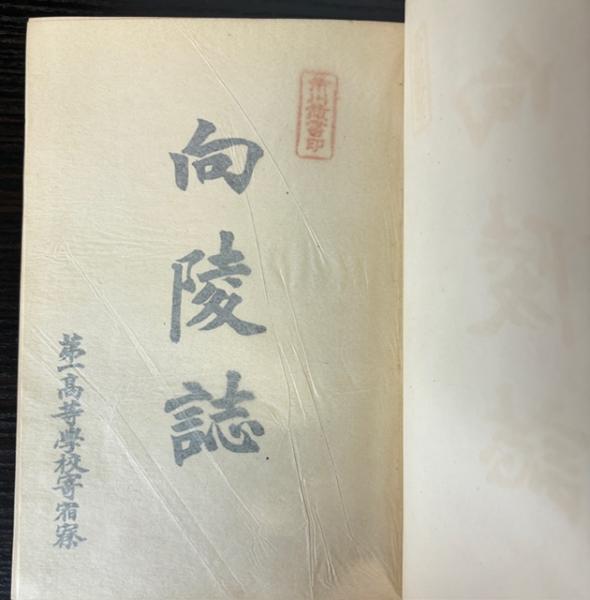 向陵誌
第一高等學校寄宿寮